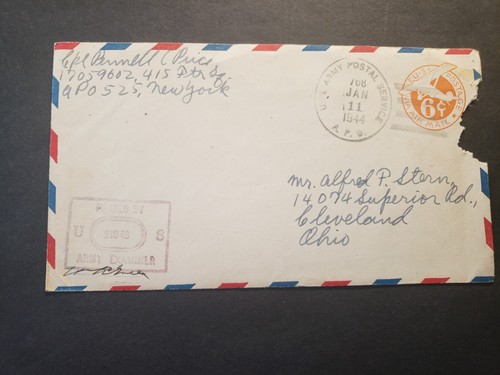 Cpl Bennett C Price
17059602, 415 Ftr Sq
APO 525, New York
U.S. ARMY POSTAL SERVICE
JAN
11
1944
A.P.O.
U.S. POSTAGE
6¢
AIR MAIL
Mr. Alfred P. Stern,
14074 Superior Rd.,
Cleveland
Ohio
PASSED BY
U S
ARMY EXAMINER